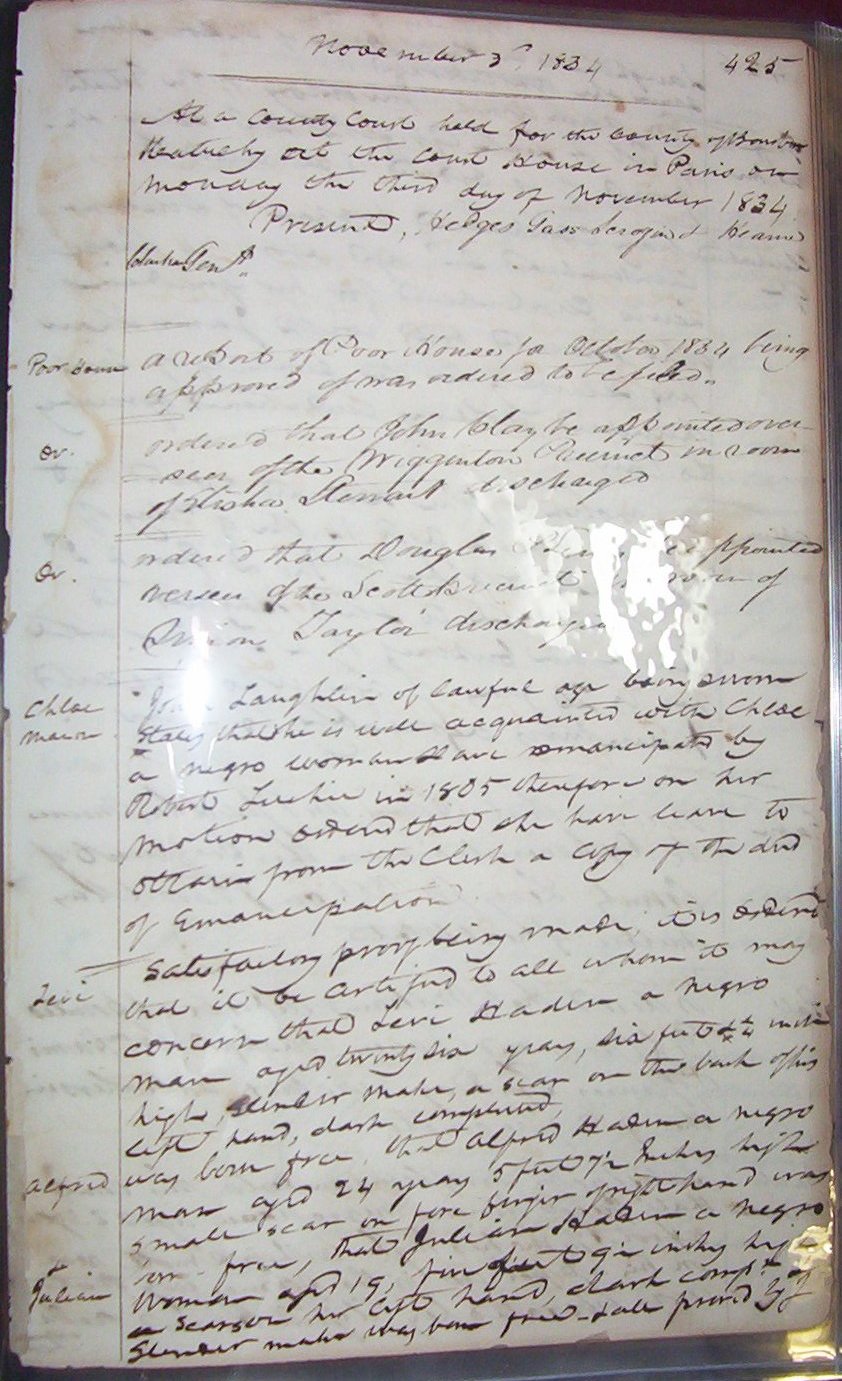 November 3d. 1834 425
At a County Court held for the County of Bourbon
Kentucky at the Court House in Paris on
monday the third day of November 1834
Present, Hedges Gass &
Gent.
Poor House a report of Poor House for October 1834 being
approved of was ordered to be filed.
ordered that John Clay be appointed over
Ov. seer of the Wiggenton Precinct in room
of Elisha Stewart discharged
ordered that Douglas be appointed
Ov. verseer of the Scotts Precinct in room of
Taylor discharged
Chloe John Laughlin of lawful age being sworn
States that he is well acquainted with Chloe
a negro woman Slave emancipated by
Robert in 1805 therefore on her
motion ordered that she have leave to
obtain from the Clerk a Copy of the deed
of Emancipation
Satisfactory proof being made, it is ordered
Levi that it be certified to all whom it may
concern that Levi Haden a negro
man aged twenty six years, six feet inches
high, slender make, a scar on the back of his
left hand, dark complected,
was born free, that Alfred Haden a negro
Alfred man aged 24 years 5 feet 9½ Inches high
small scar on fore finger of right hand was
born free, that Julian Haden a negro
& woman aged 19, five feet inches high
Julian a scar on her left hand, dark compt. & of
slender make was born free - all proved by